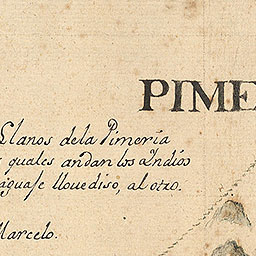 PIME
Llanos dela Pimería
quales andan los Indios
aguase llouediso, al otro.
Marcelo.